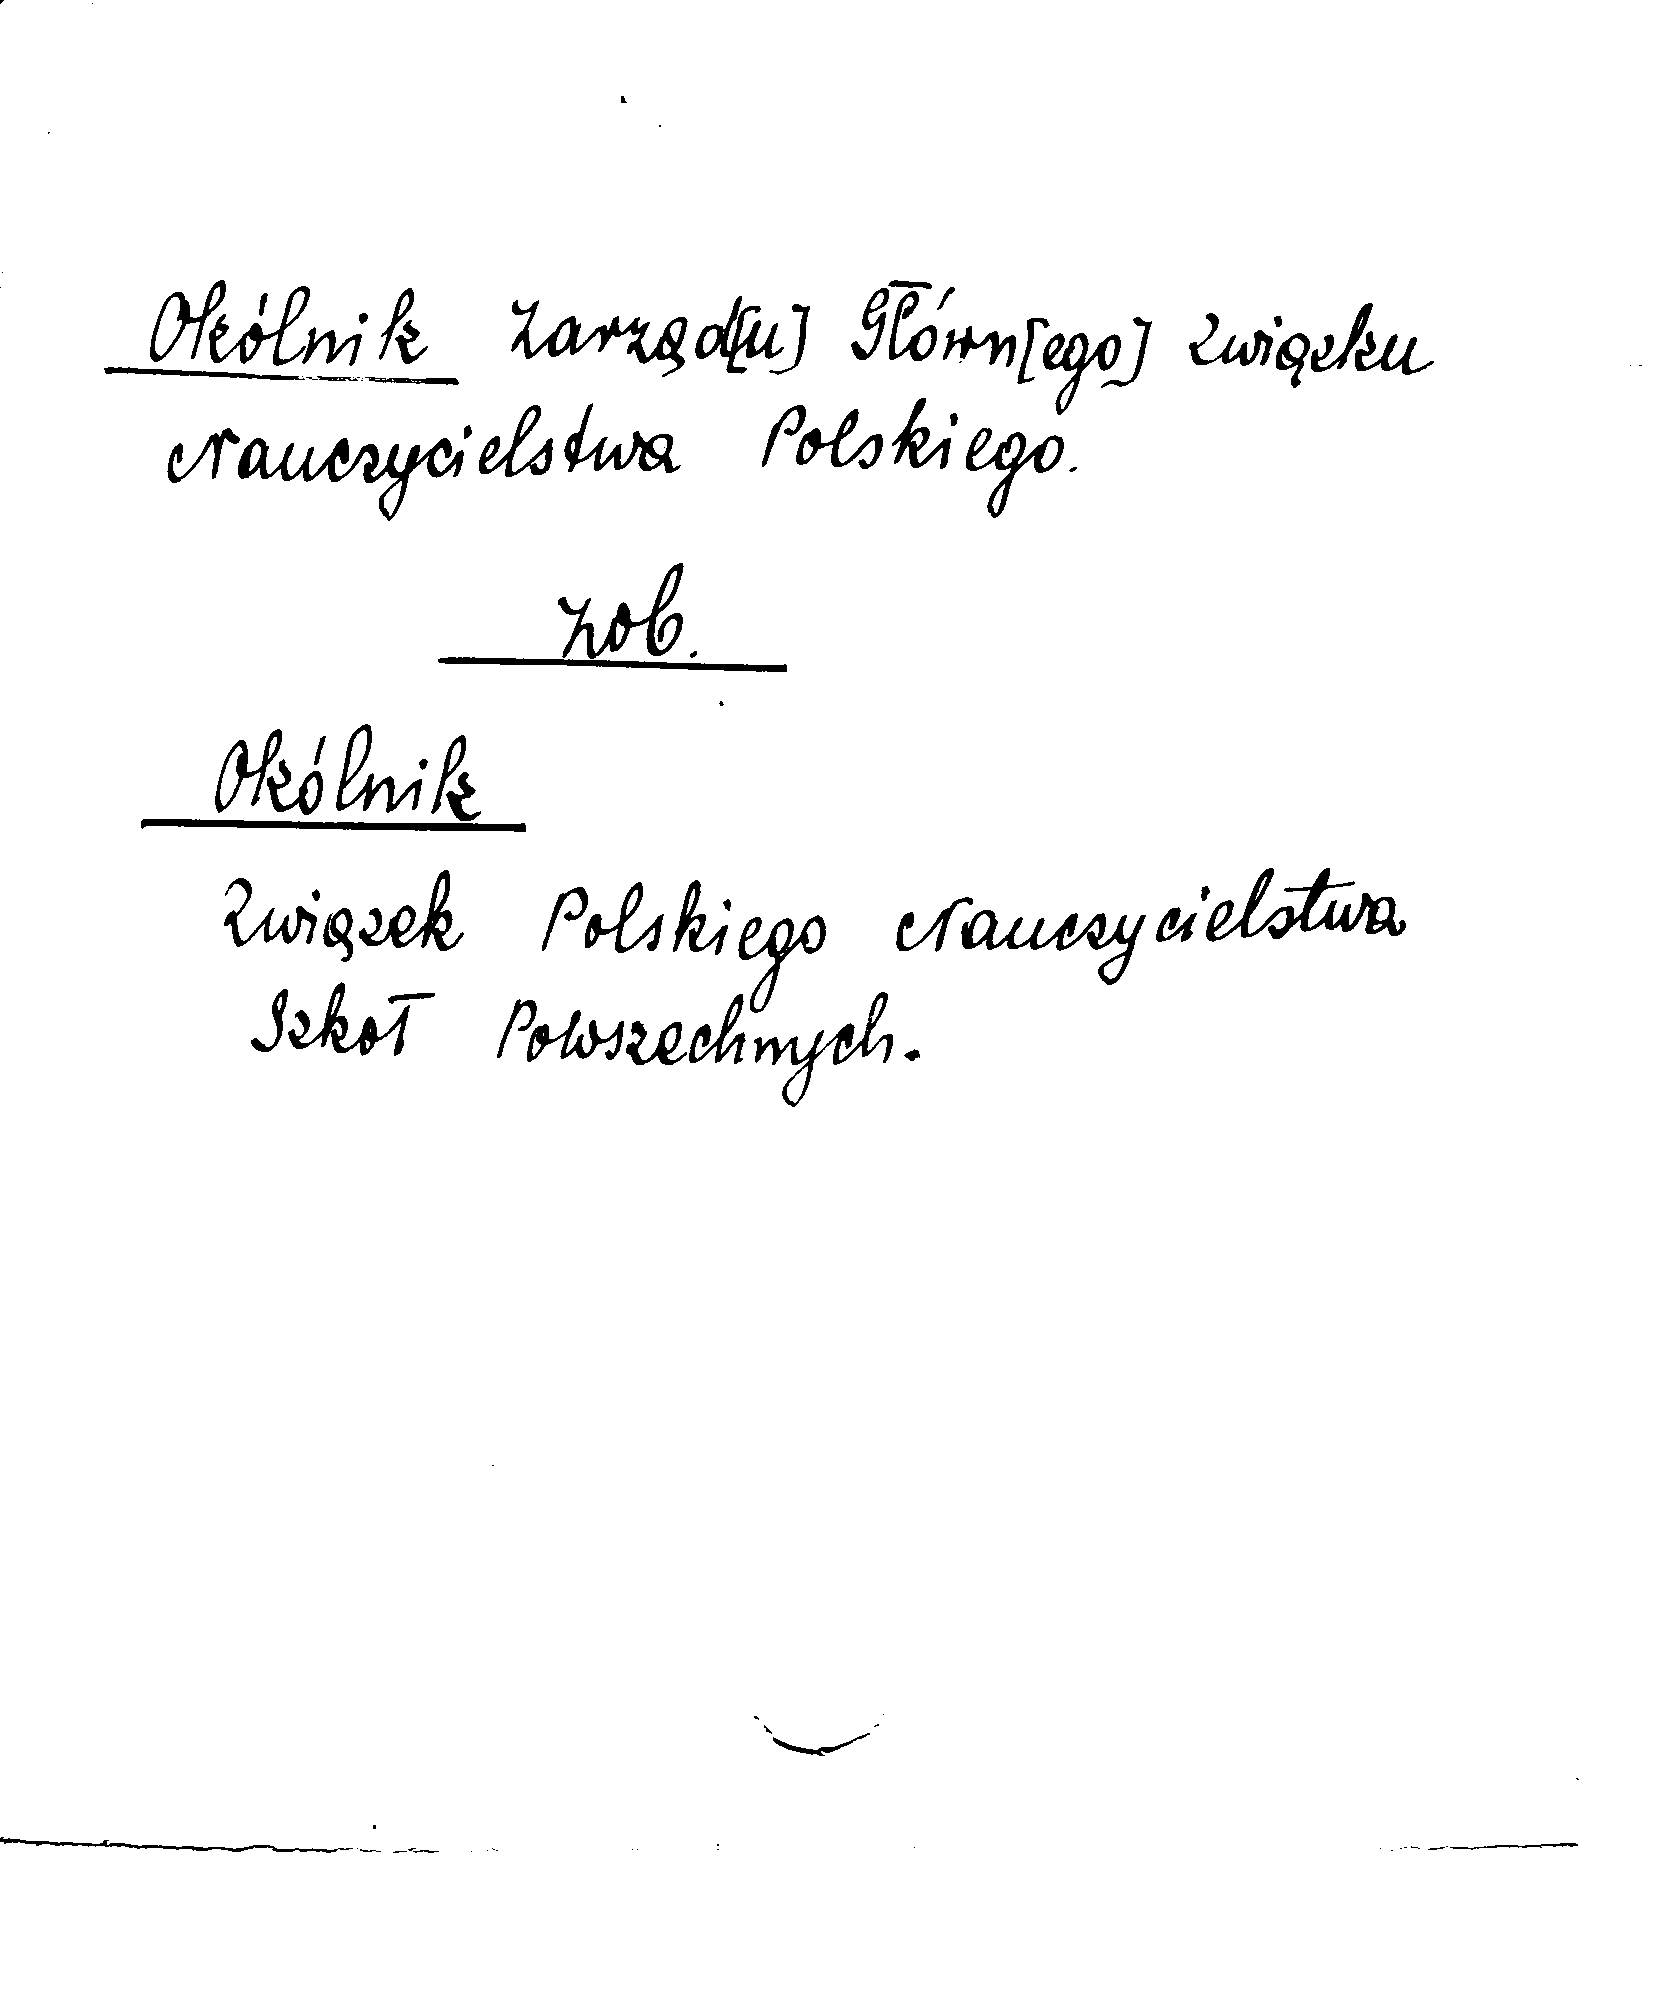 Okólnik Zarząd[u] Główn[ego] Związku
Nauczycielstwa Polskiego.
Zob.
Okólnik
Związek Polskiego Nauczycielstwa
Szkoł Powszechnych.